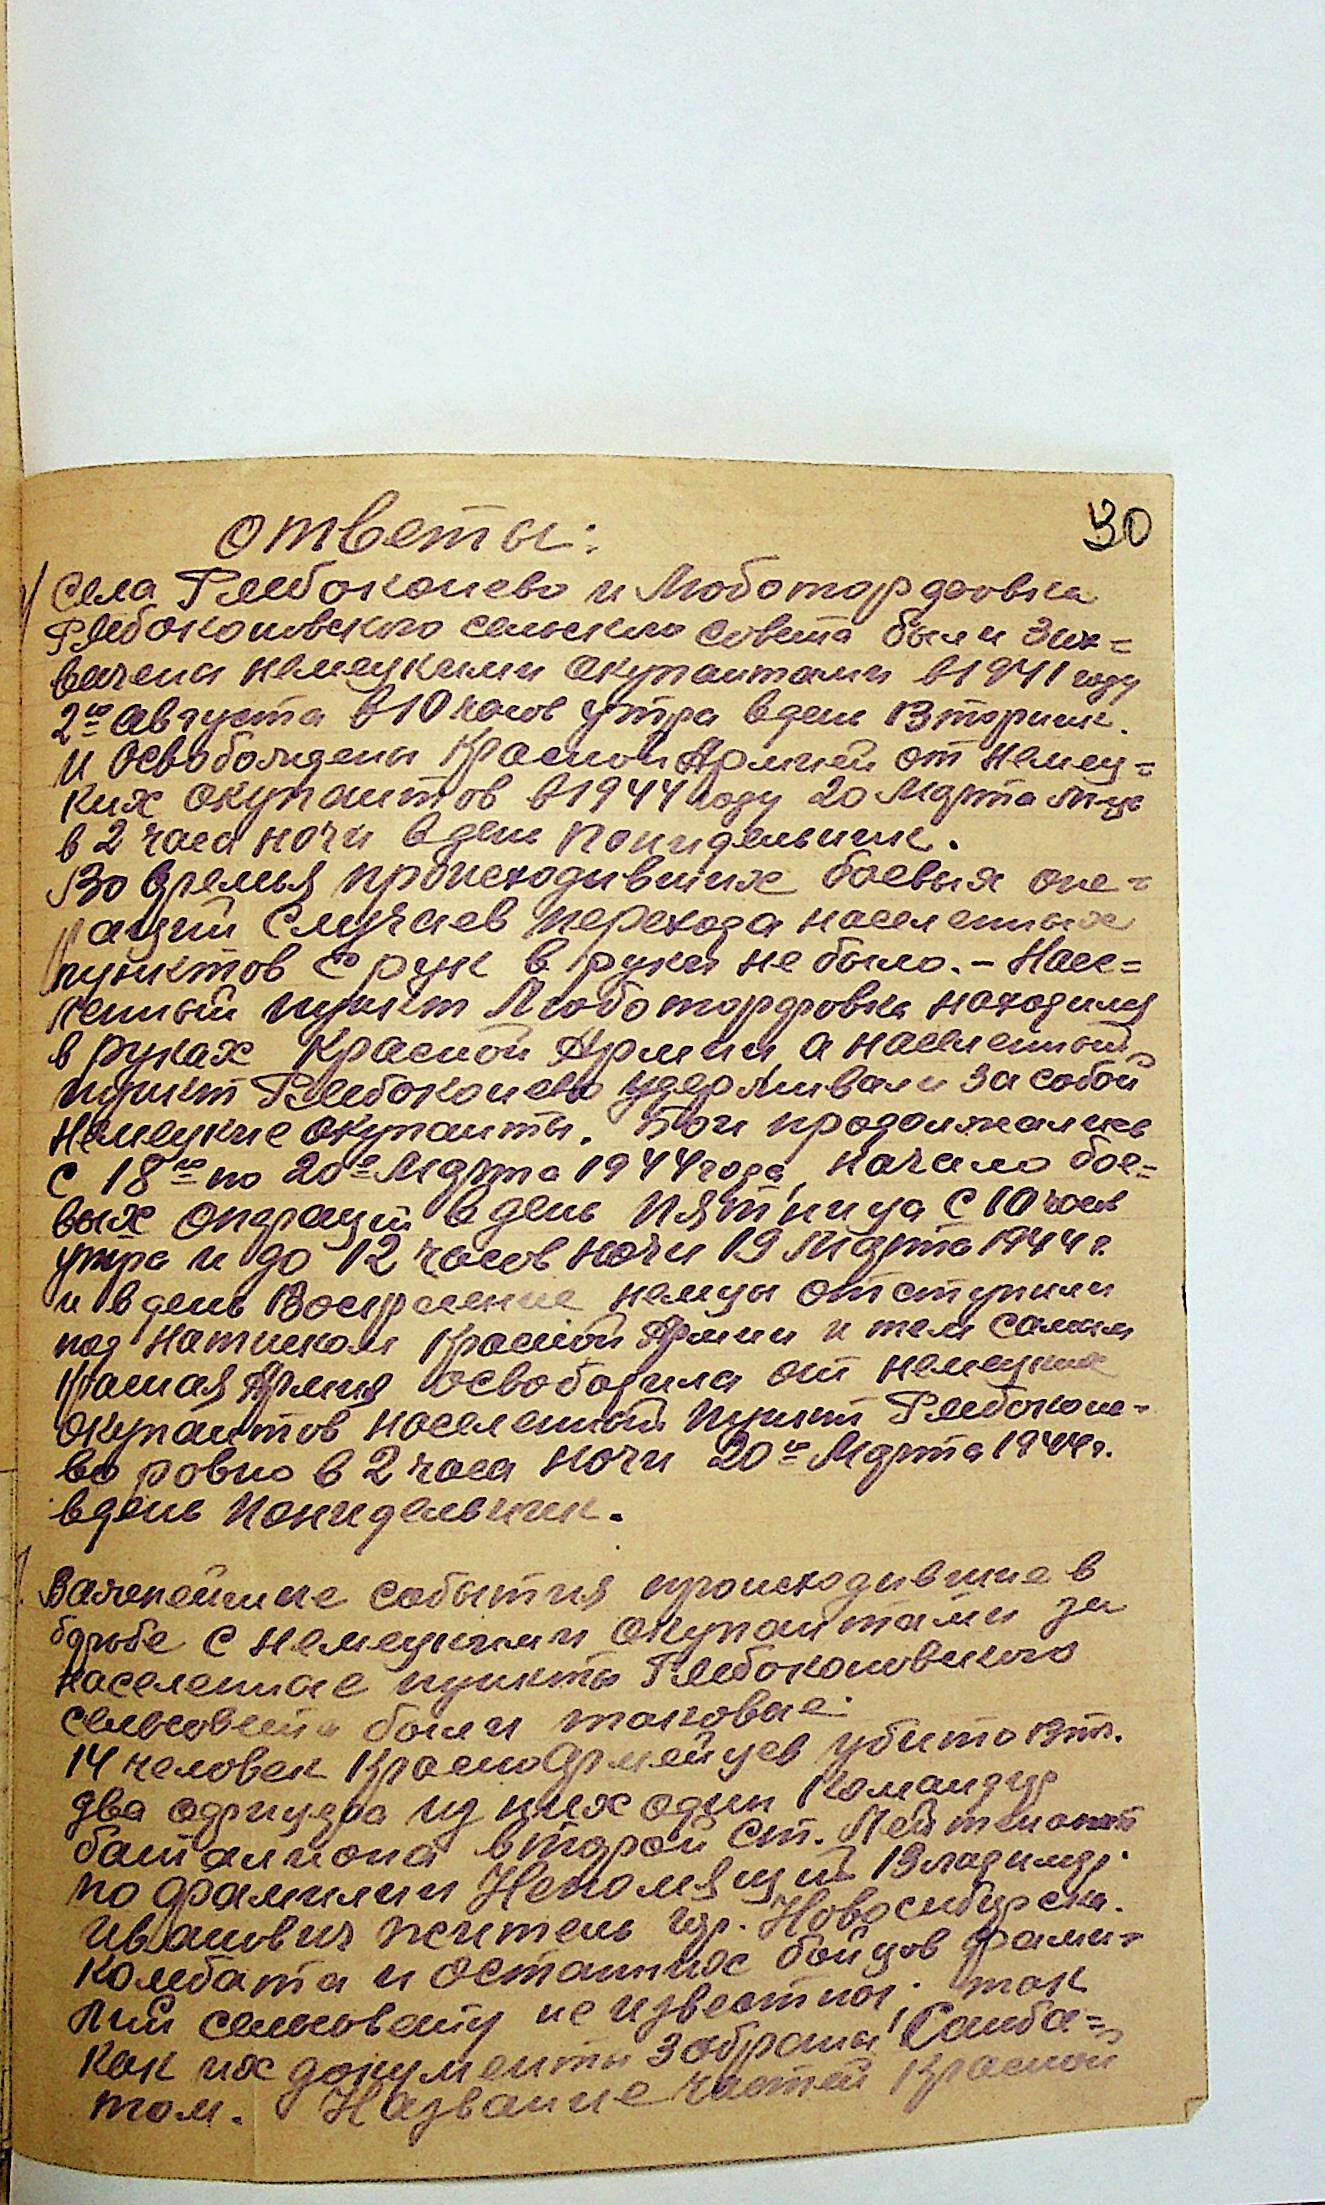 30
Ответы:
1/ Села Глебокопево и Люботордровка
Глебокоповского сельского совета были зах=
вачены немецкими окупантами в 1941 году
2го августа в 10 часов утра вдень Вторник.
и Освобождены Красной Армией от Немец=
ких окупантов в 1944 году 20 Марта м-ца
в 2 часа ночи вдень понидельник.
Во время происходивших боевых опе=
раций Случаев перехода населенных
пунктов с рук в руки не было. – Насе=
ленный пункт находился
в руках Красной Армии а населенный
пункт Глебокопево удерживали за собой
Немецкие окупанты. Бои продолжались
с 18го по 20го Марта 1944 года, начало бое=
вых операций вдень Пятница с 10 часов
утра и до 12 часов ночи 19 Марта 1944 г.
и вдень Воскресение немцы отступили
под натиском Красной Армии и тем самым
Красная Армия освободила от немецких
окупантов населенный пункт Глебокопе-
во ровно в 2 часа ночи 20го Марта 1944 г.
вдень Понидельник.
Важнейшие события происходившие в
борьбе с немецкими окупантами за
населенные пункты Глебокоповского
сельсовета были таковые:
14 человек Красноармейцев убито Вт.
два офицера из них один Командир
баталиона второй Ст. Лейтенант
по фамилии Непомящий Владимир.
Иванович житель гор. Новосибирска.
Комбата и останних бойцов фами-
лии сельсовету не известны. так
как их документы забраны Санба=
том. Название частей Красной